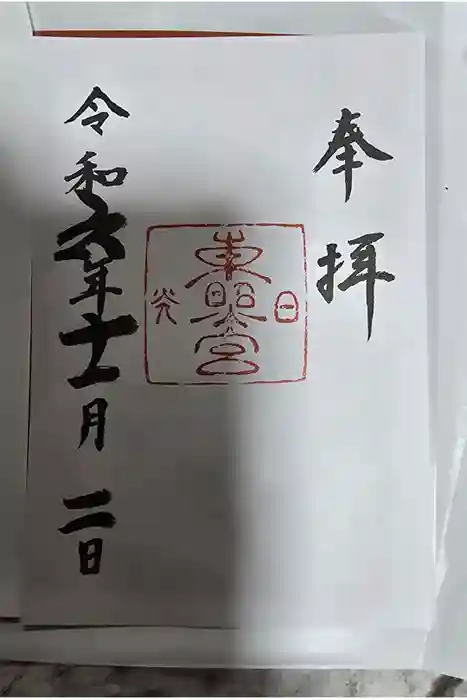 奉拝
日
東照宮
光
令和六年十一月二日